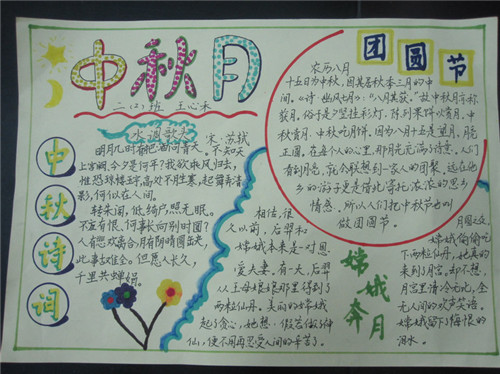 中秋月
二(2)班 王心木
团圆节
农历八月
十五日为中秋,因其居秋季三月的中
间。《诗·豳风·七月》:“八月其获。”故中秋月亦称
获月。俗于是夕竖挂彩灯,陈列果饼以
中秋吃月饼,因为八十五是望月,月亮
正圆。在每个人的心里,那月儿充满诗意。人们
看到月亮,就会联想到一家人的团聚。远在他
乡的游子更是借此寄托浓浓的思乡
情感。所以人们把中秋节也叫
做团圆节。
水调歌头
宋·苏轼
明月几时有把酒问青天。不知天
上宫阙,今夕是何年?我欲乘风归去,
惟恐琼楼玉宇,高处不胜寒,起舞弄清
影,何似在人间。
转朱阁,低绮户,照无眠。
不应有恨,何事长向别时圆?
人有悲欢离合,月有阴晴圆缺,
此事古难全。但愿人长久,
千里共婵娟。
中秋诗词
相传,很
久以前,后羿和
嫦娥本来是一对恩
爱夫妻。有一天,后羿
从王母娘娘那里得到了
两粒仙丹。美丽的嫦娥
起了贪心,她想:假若做了神
仙,便不用再忍受人间的辛苦了。
嫦娥奔月
嫦娥偷偷吃
下两粒仙丹,她真的
来到了月宫,却不想,
月宫里清冷无比,全
无人间的欢声笑语。
嫦娥留下了悔恨的
泪水。